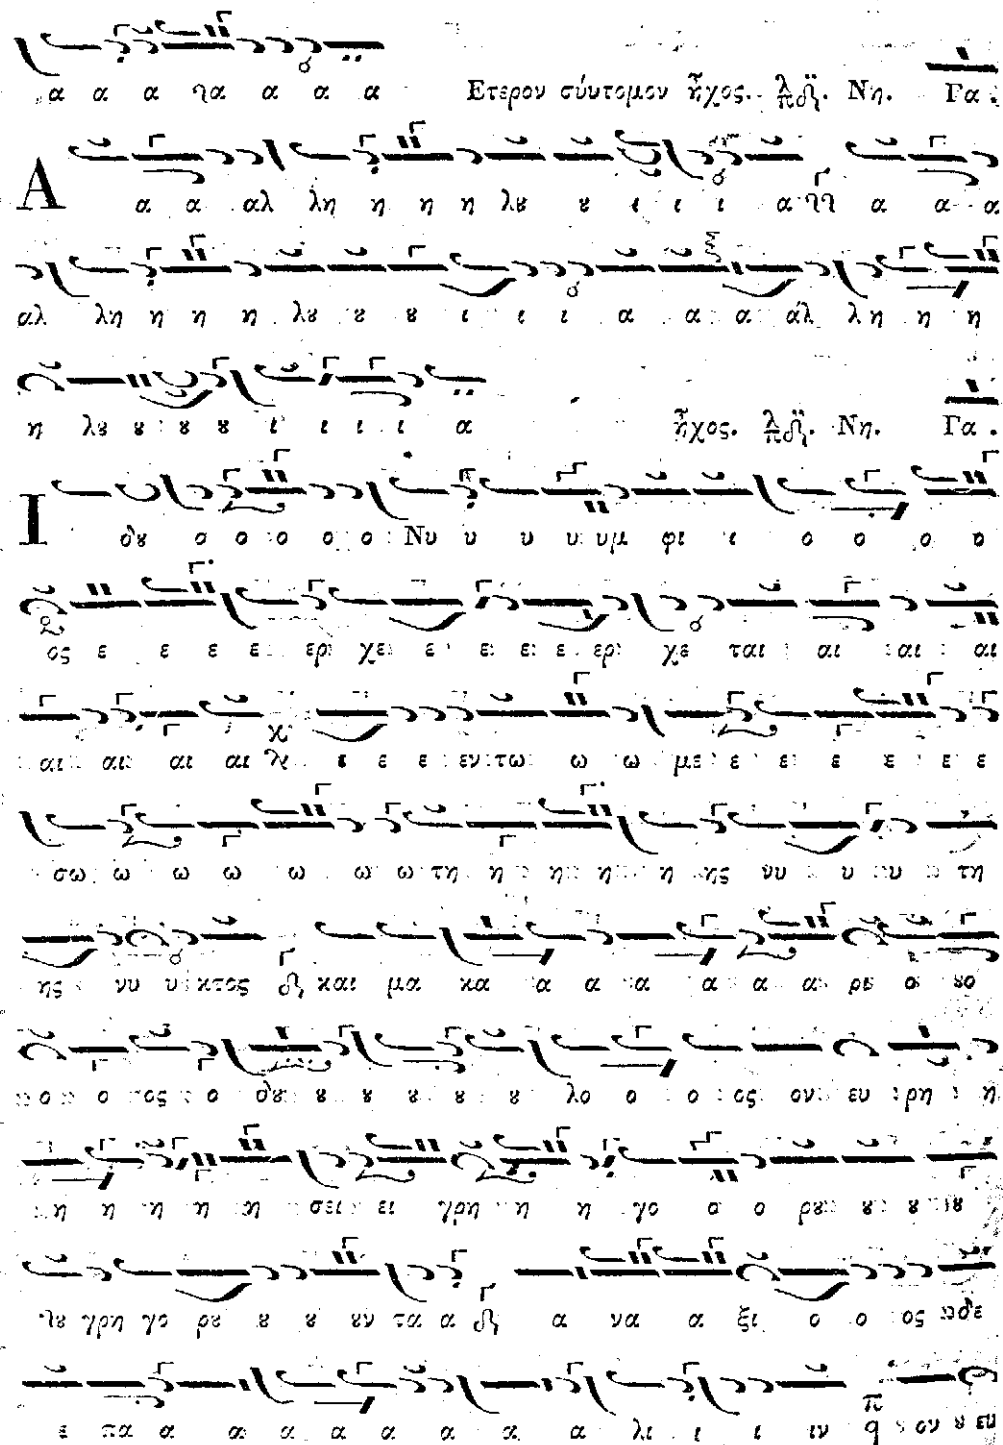 α α α ηα α α α Ετερον σύντομον ἦχος. λ πδ. Νη. Γα.
Α α α αλ λη η η η λȣ ȣ ι ι ι α α α α
αλ λη η η η λȣ ȣ ȣ ι ι ι α α α άλ λη η η
η λȣ ȣ ȣ ȣ ι ι ι ι α ἦχος. λ πδ. Νη. Γα.
Ι δȣ ο ο ο ο ο Νυ υ υ υ υμ φι ι ο ο ο ο
ος ε ε ε ε ερ χε ε ε ε ε ερ χε ται αι αι αι
αι αι αι αι ε ε ε εν τω ω ω με ε ε ε ε ε ε
σω ω ω ω ω ω ω τη η η η η ης νυ υ υ υ τη
ης νυ υ κτος και μα κα α α α α α α ρι ο
ο ο ος ο δȣ ȣ ȣ ȣ ȣ ȣ λο ο ο ος ον ευ ρη η
η η η η η σει ει γρη η η γο ο ο ρȣ ȣ ȣ ȣ
ȣ γρη γο ρȣ ȣ ȣ ȣν τα α α να α ξι ο ο ος δε
ε πα α α α α α α α α λι ι ι ιν ον